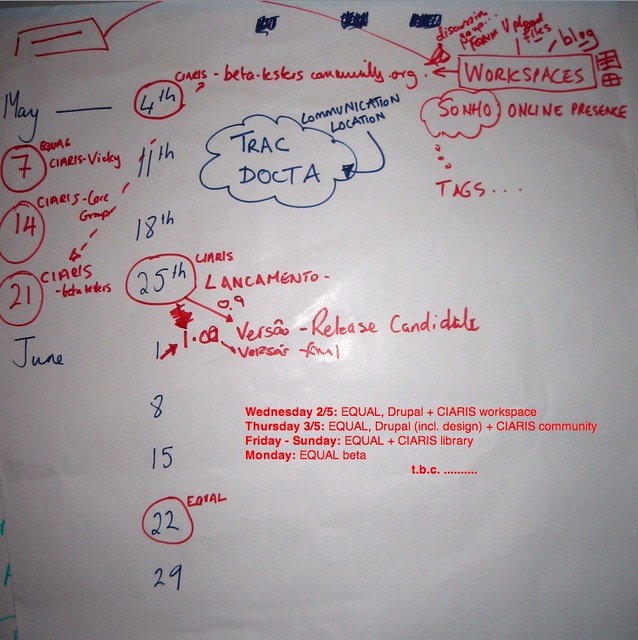 discussion group...
FORUM
Upload files
blog
WORKSPACES
CIARIS - beta-testers community.org.
May
4th
SONHO ONLINE PRESENCE
TAGS...
COMMUNICATION
LOCATION
TRAC
DOCTA
7 EQUAL
CIARIS-Vicky
11th
14 CIARIS-Core
Group
18th
21 CIARIS
-beta testers
25th CIARIS
LANCAMENTO -
0.9
Versão - Release Candidate
1.00
Versão final
June
1
8
Wednesday 2/5: EQUAL, Drupal + CIARIS workspace
Thursday 3/5: EQUAL, Drupal (incl. design) + CIARIS community
Friday - Sunday: EQUAL + CIARIS library
Monday: EQUAL beta
t.b.c. ..........
15
22 EQUAL
29